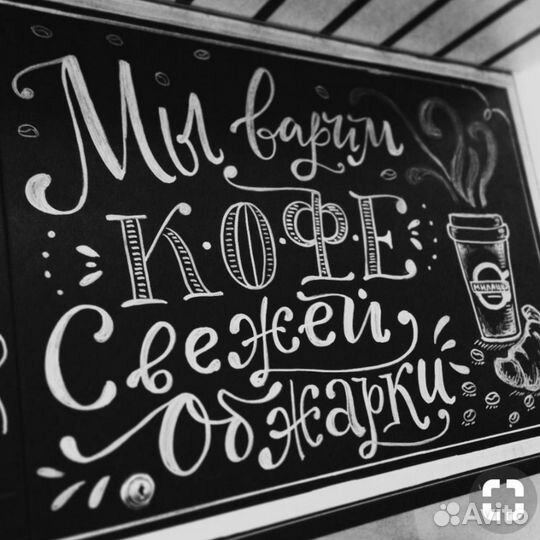 Мы варим
К·О·Ф·Е
Свежей
Обжарки
Avito